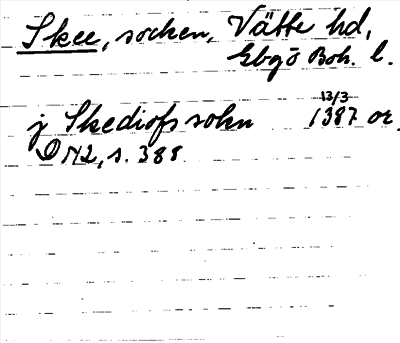 Skee, socken, Vätte hd,
Gbgs Boh. l.
13/3
j Skediofs sokn 1387 or.
DN 2, s. 388